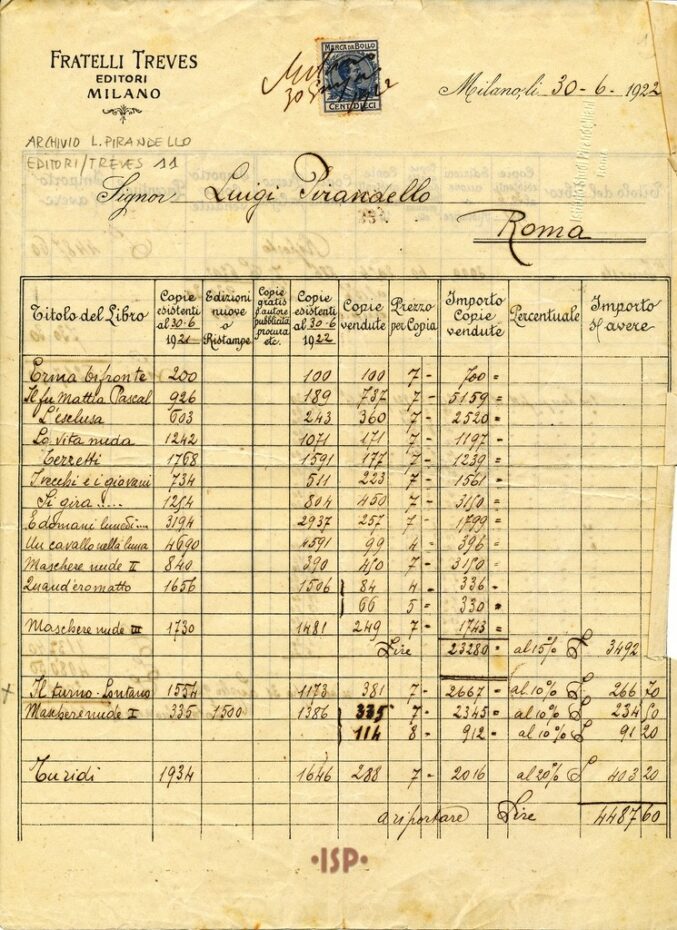 FRATELLI TREVES
EDITORI
MILANO
MARCA DA BOLLO
CENT. DIECI
Milano
1922
Milano, li 30-6 1922
ARCHIVIO L. PIRANDELLO
EDITORI/TREVES 11
Signor Luigi Pirandello
Roma
Titolo del Libro | Copie esistenti al 30-6 1921 | Edizioni nuove o Ristampe | Copie gratis d'autore pubblicità procura etc. | Copie esistenti al 30-6 1922 | Copie vendute | Prezzo per Copia | Importo Copie vendute | Percentuale | Importo s/ avere
Erma bifronte 200 100 100 7 - 700 =
Il fu Mattia Pascal 926 189 737 7 - 5159 =
L'esclusa 603 243 360 7 - 2520 =
La vita nuda 1242 1071 171 7 - 1197 -
Terzetti 1768 1591 177 7 - 1239 =
I vecchi e i giovani 734 511 223 7 - 1561 =
Si gira..... 1254 804 450 7 - 3150 =
E domani lunedì.... 3194 2937 257 7 - 1799 =
Un cavallo nella luna 4690 4591 99 4 - 396 =
Maschere nude II 840 390 450 7 - 3150 =
Quand'ero matto 1656 1506 84 4 - 336 -
66 5 = 330 =
Maschere nude III 1730 1481 249 7 - 1743 =
Lire 23280 = al 15% £ 3492
x Il turno - Lontano 1554 1173 381 7 - 2667 - al 10% £ 266 70
Maschere nude I 335 1500 1386 335 7 - 2345 = al 10% £ 234 50
114 8 - 912 - al 10% £ 91 20
Tu ridi 1934 1646 288 7 - 2016 al 20% £ 403 20
a riportare Lire 4487 60
•ISP•